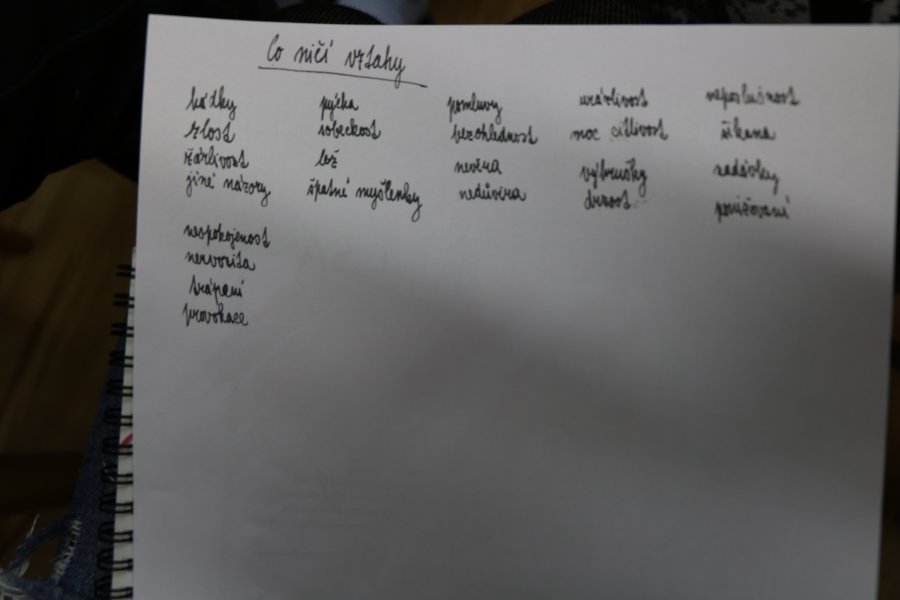 Co ničí vztahy
hádky pýcha pomluvy urážlivost neposlušnost
zlost sobeckost bezohlednost moc citlivost šikana
žárlivost lež nevěra výbrušky nadávky
jiné názory špatné myšlenky nedůvěra drzost ponižování
nespokojenost
nervozita
trápení
provokace